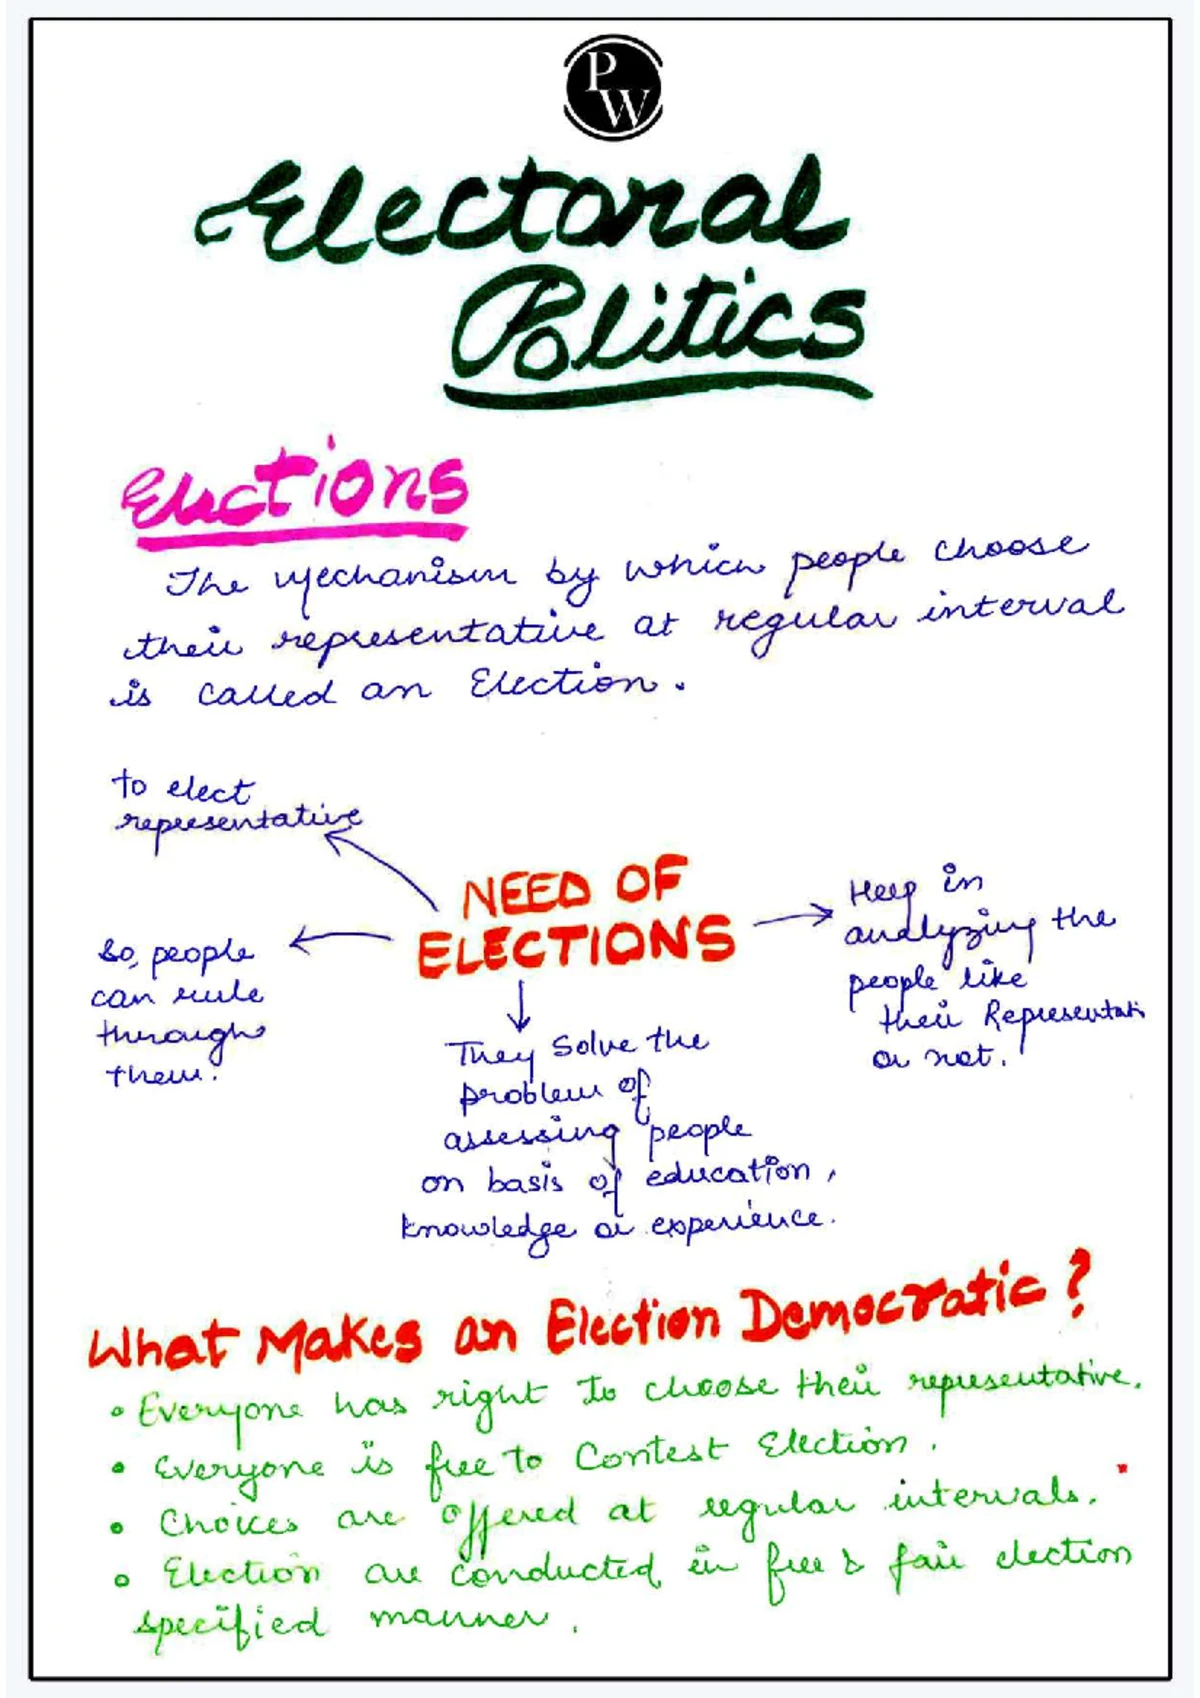 PW
Electoral
Politics
Elections
The Mechanism by which people choose
their representative at regular interval
is called an Election.
to elect
representative
NEED OF
ELECTIONS
So, people
can rule
through
them.
Help in
analyzing the
people like
their Representati
or not.
They Solve the
problem of
assessing people
on basis of education,
knowledge or experience.
What Makes an Election Democratic?
• Everyone has right to choose their representative.
• Everyone is free to Contest Election.
• Choices are offered at regular intervals.
• Election are conducted in free & fair election
specified manner.